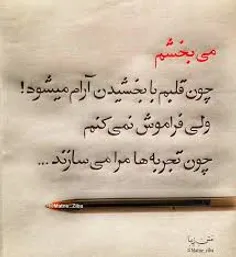 می‌بخشم
چون قلبم با بخشیدن آرام میشود!
ولی فراموش نمی‌کنم
چون تجربه‌ها مرا می‌سازند ...
@Matne_Ziba
متن زیبا
@Matne_ziba